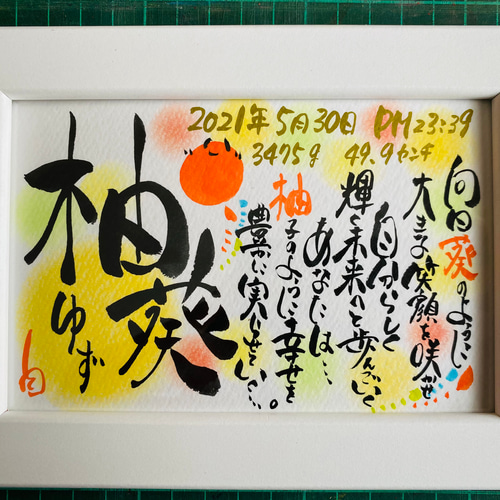 2021年5月30日 PM23:39
3475g 49.9センチ
柚葵
ゆず
向日葵のように
大きな笑顔を咲かせ
自分らしく
輝く未来へと歩んでいく
あなたは…
柚子のように幸せを
豊かに実らせていく…。